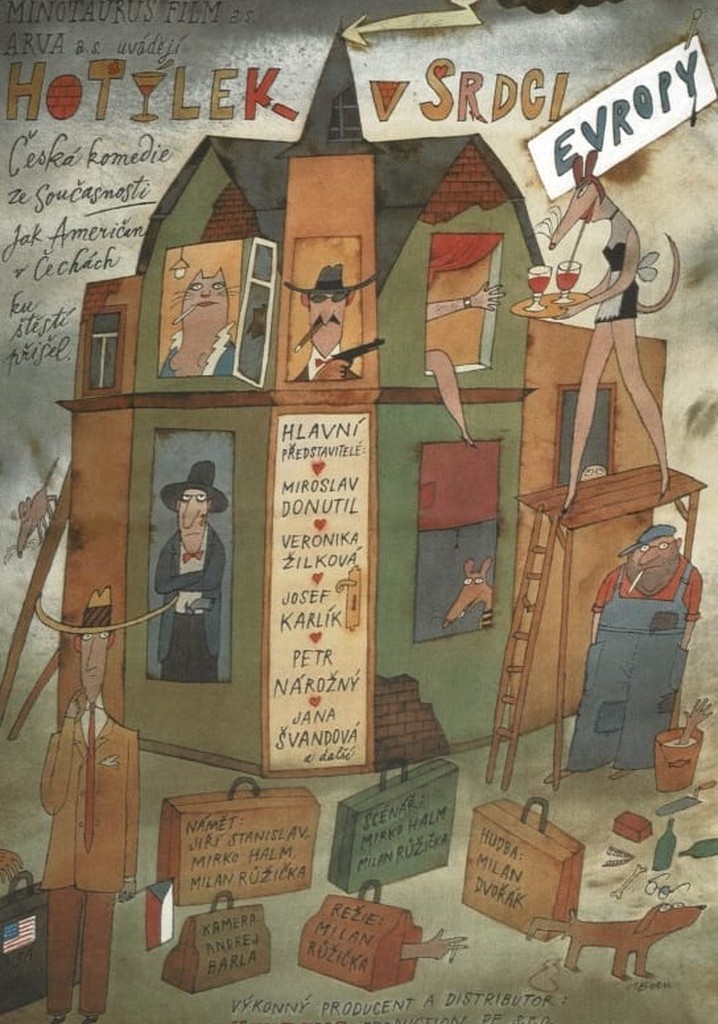 MINOTAURUS FILM a.s.
ARVA a.s. uvádějí
HOTÝLEK V SRDCI
EVROPY
Česká komedie
ze současnosti
Jak Američan
v Čechách
ku
štěstí
přišel.
HLAVNÍ
PŘEDSTAVITELÉ:
MIROSLAV
DONUTIL
VERONIKA
ŽILKOVÁ
JOSEF
KARLÍK
PETR
NÁROŽNÝ
JANA
ŠVANDOVÁ
a další
NÁMĚT:
JIŘÍ STANISLAV,
MIRKO HALM,
MILAN RŮŽIČKA
SCÉNÁŘ:
MIRKO HALM
MILAN RŮŽIČKA
HUDBA:
MILAN
DVOŘÁK
KAMERA:
ANDREJ
BARLA
REŽIE:
MILAN
RŮŽIČKA
VÝKONNÝ PRODUCENT A DISTRIBUTOR: